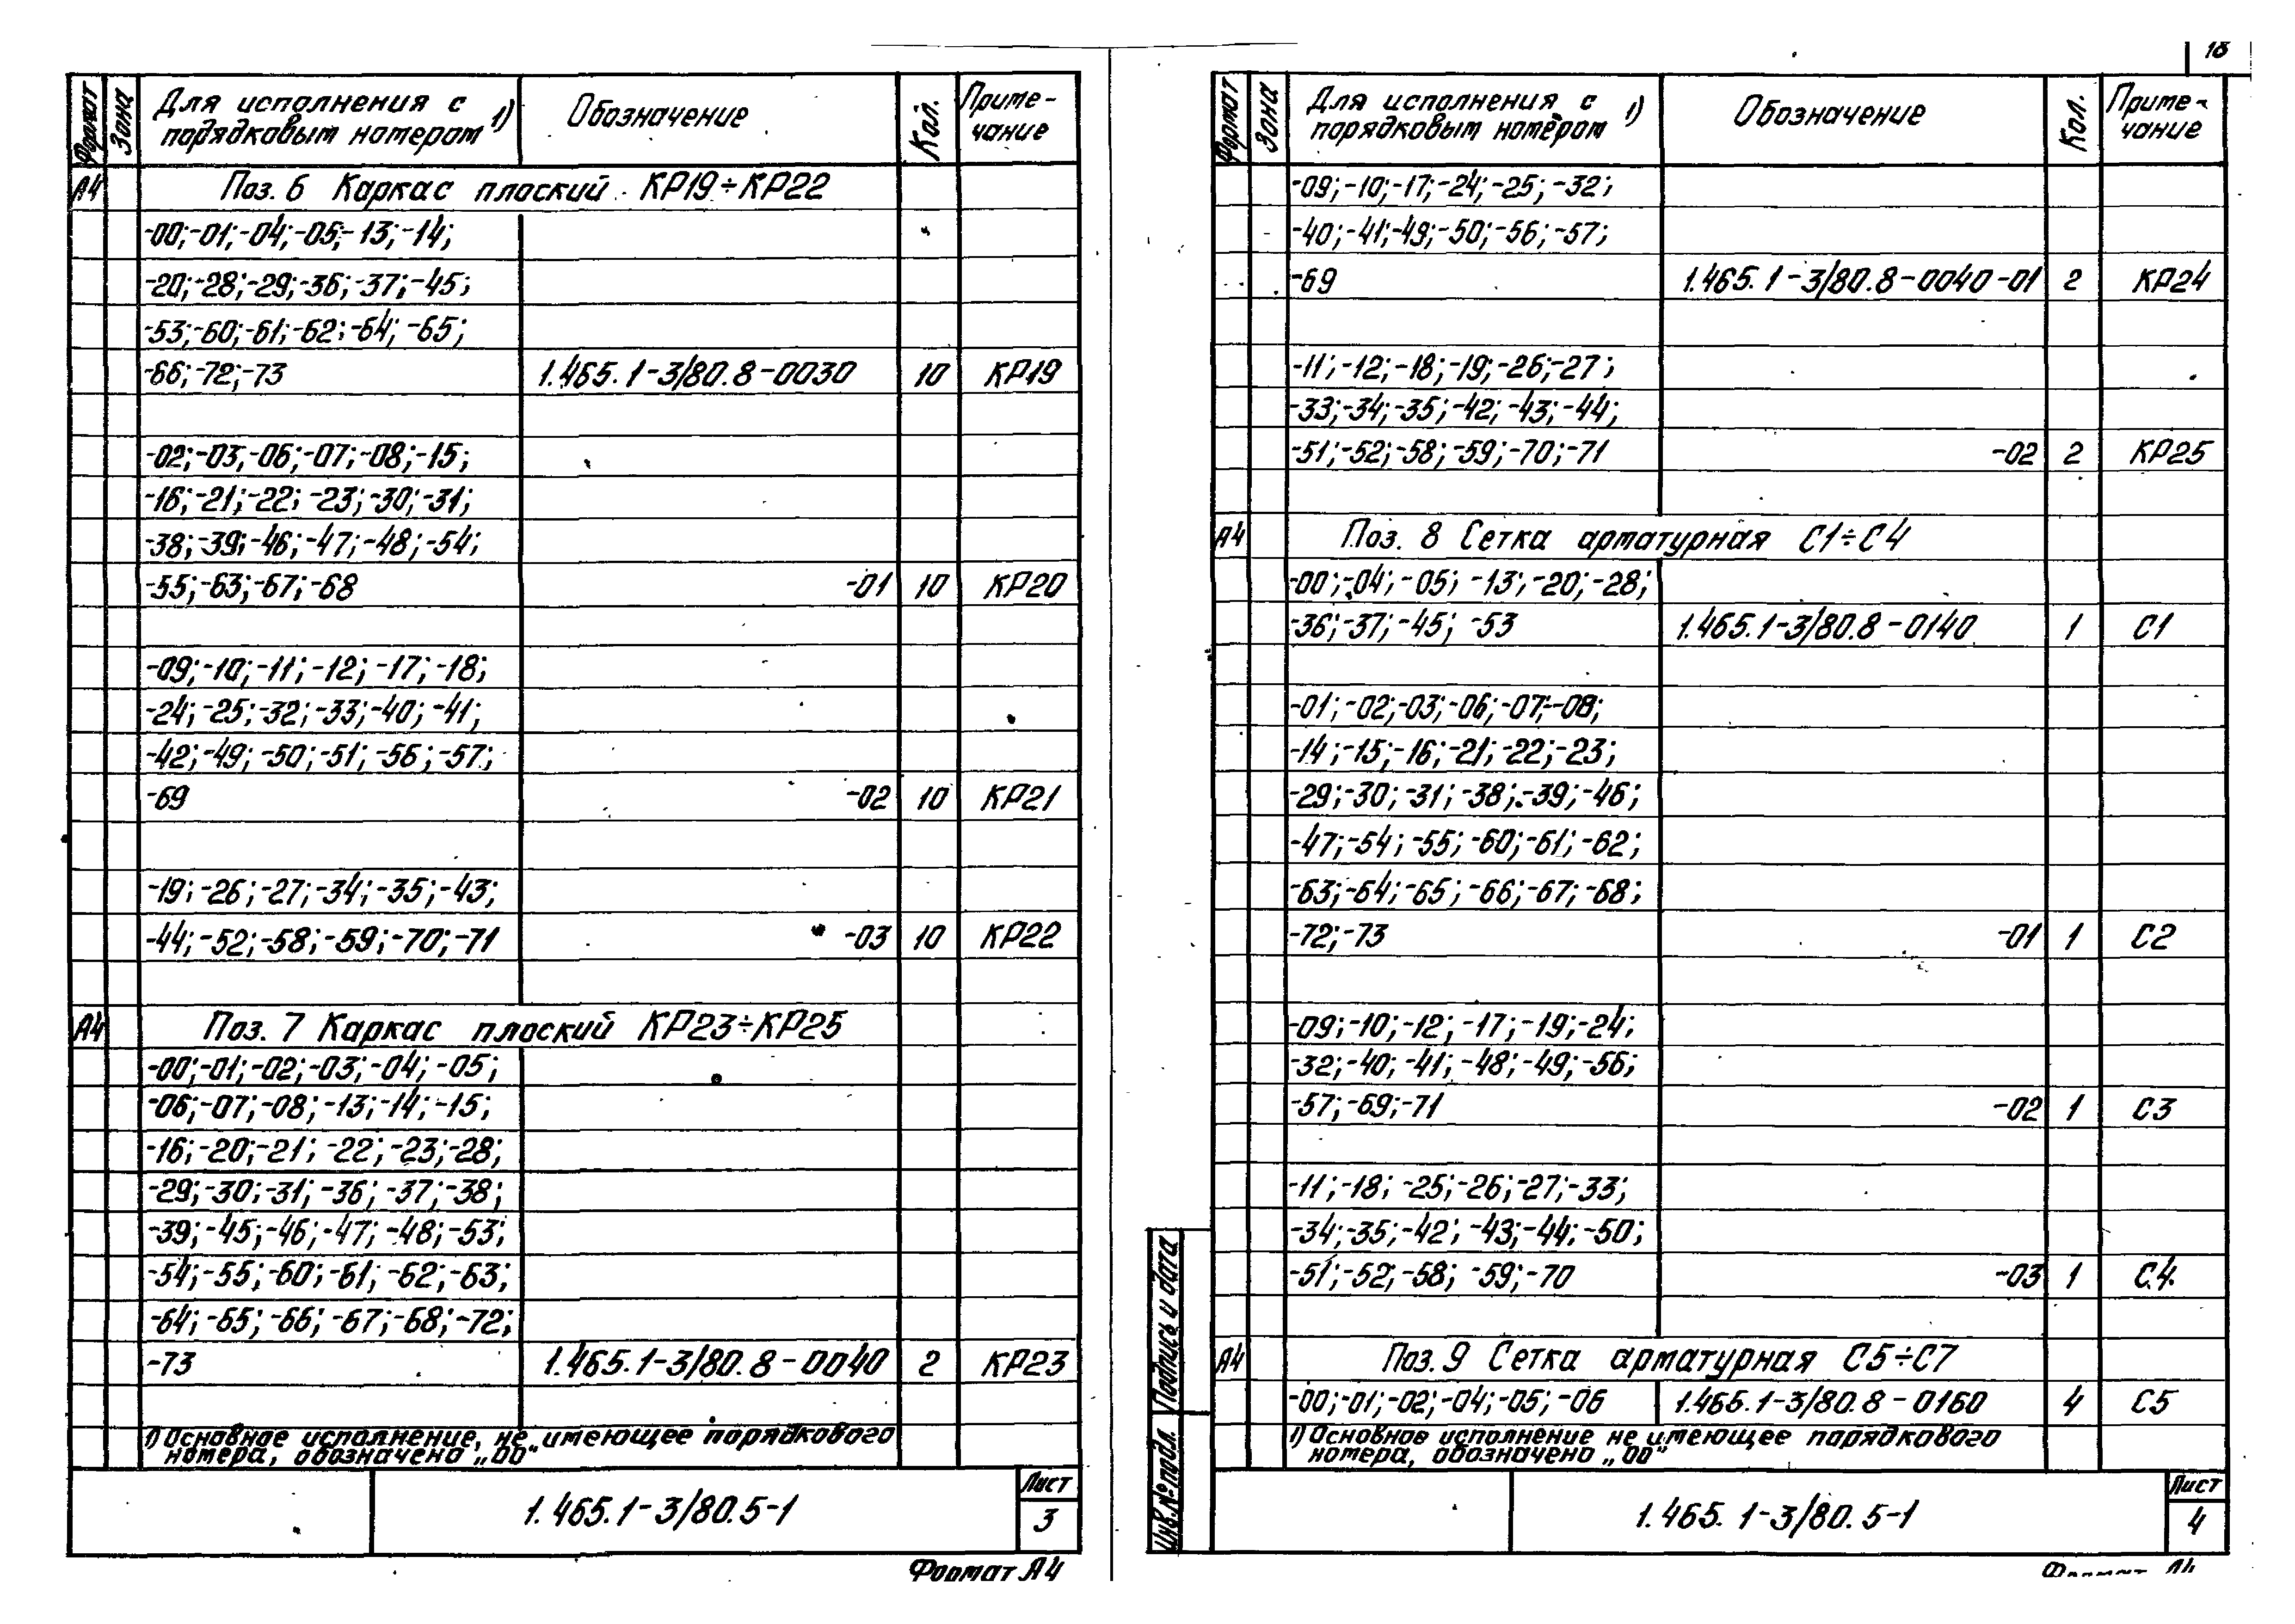 Формат Зона Для исполнения с порядковым номером 1) Обозначение Кол. Приме-чание
А4 Поз. 6 Каркас плоский КР19÷КР22
-00;-01;-04;-05;-13;-14;
-20;-28;-29;-36;-37;-45;
-53;-60;-61;-62;-64;-65;
-66;-72;-73 1.465.1-3/80.8-0030 10 КР19
-02;-03;-06;-07;-08;-15;
-16;-21;-22;-23;-30;-31;
-38;-39;-46;-47;-48;-54;
-55;-63;-67;-68 -01 10 КР20
-09;-10;-11;-12;-17;-18;
-24;-25;-32;-33;-40;-41;
-42;-49;-50;-51;-56;-57;
-69 -02 10 КР21
-19;-26;-27;-34;-35;-43;
-44;-52;-58;-59;-70;-71 -03 10 КР22
А4 Поз. 7 Каркас плоский КР23÷КР25
-00;-01;-02;-03;-04;-05;
-06;-07;-08;-13;-14;-15;
-16;-20;-21;-22;-23;-28;
-29;-30;-31;-36;-37;-38;
-39;-45;-46;-47;-48;-53;
-54;-55;-60;-61;-62;-63;
-64;-65;-66;-67;-68;-72;
-73 1.465.1-3/80.8-0040 2 КР23
1) Основное исполнение, не имеющее порядкового
номера, обозначено „00"
1.465.1-3/80.5-1 Лист 3
Формат А4
18
Формат Зона Для исполнения с порядковым номером 1) Обозначение Кол. Приме-чание
-09;-10;-17;-24;-25;-32;
-40;-41;-49;-50;-56;-57;
-69 1.465.1-3/80.8-0040-01 2 КР24
-11;-12;-18;-19;-26;-27;
-33;-34;-35;-42;-43;-44;
-51;-52;-58;-59;-70;-71 -02 2 КР25
А4 Поз. 8 Сетка арматурная С1÷С4
-00;-04;-05;-13;-20;-28;
-36;-37;-45;-53 1.465.1-3/80.8-0140 1 С1
-01;-02;-03;-06;-07;-08;
-14;-15;-16;-21;-22;-23;
-29;-30;-31;-38;-39;-46;
-47;-54;-55;-60;-61;-62;
-63;-64;-65;-66;-67;-68;
-72;-73 -01 1 С2
-09;-10;-12;-17;-19;-24;
-32;-40;-41;-48;-49;-56;
-57;-69;-71 -02 1 С3
-11;-18;-25;-26;-27;-33;
-34;-35;-42;-43;-44;-50;
-51;-52;-58;-59;-70 -03 1 С4
А4 Поз. 9 Сетка арматурная С5÷С7
-00;-01;-02;-04;-05;-06 1.465.1-3/80.8-0160 4 С5
1) Основное исполнение не имеющее порядкового
номера, обозначено „00"
Инв.№подл. Подпись и дата
1.465.1-3/80.5-1 Лист 4
Формат А4